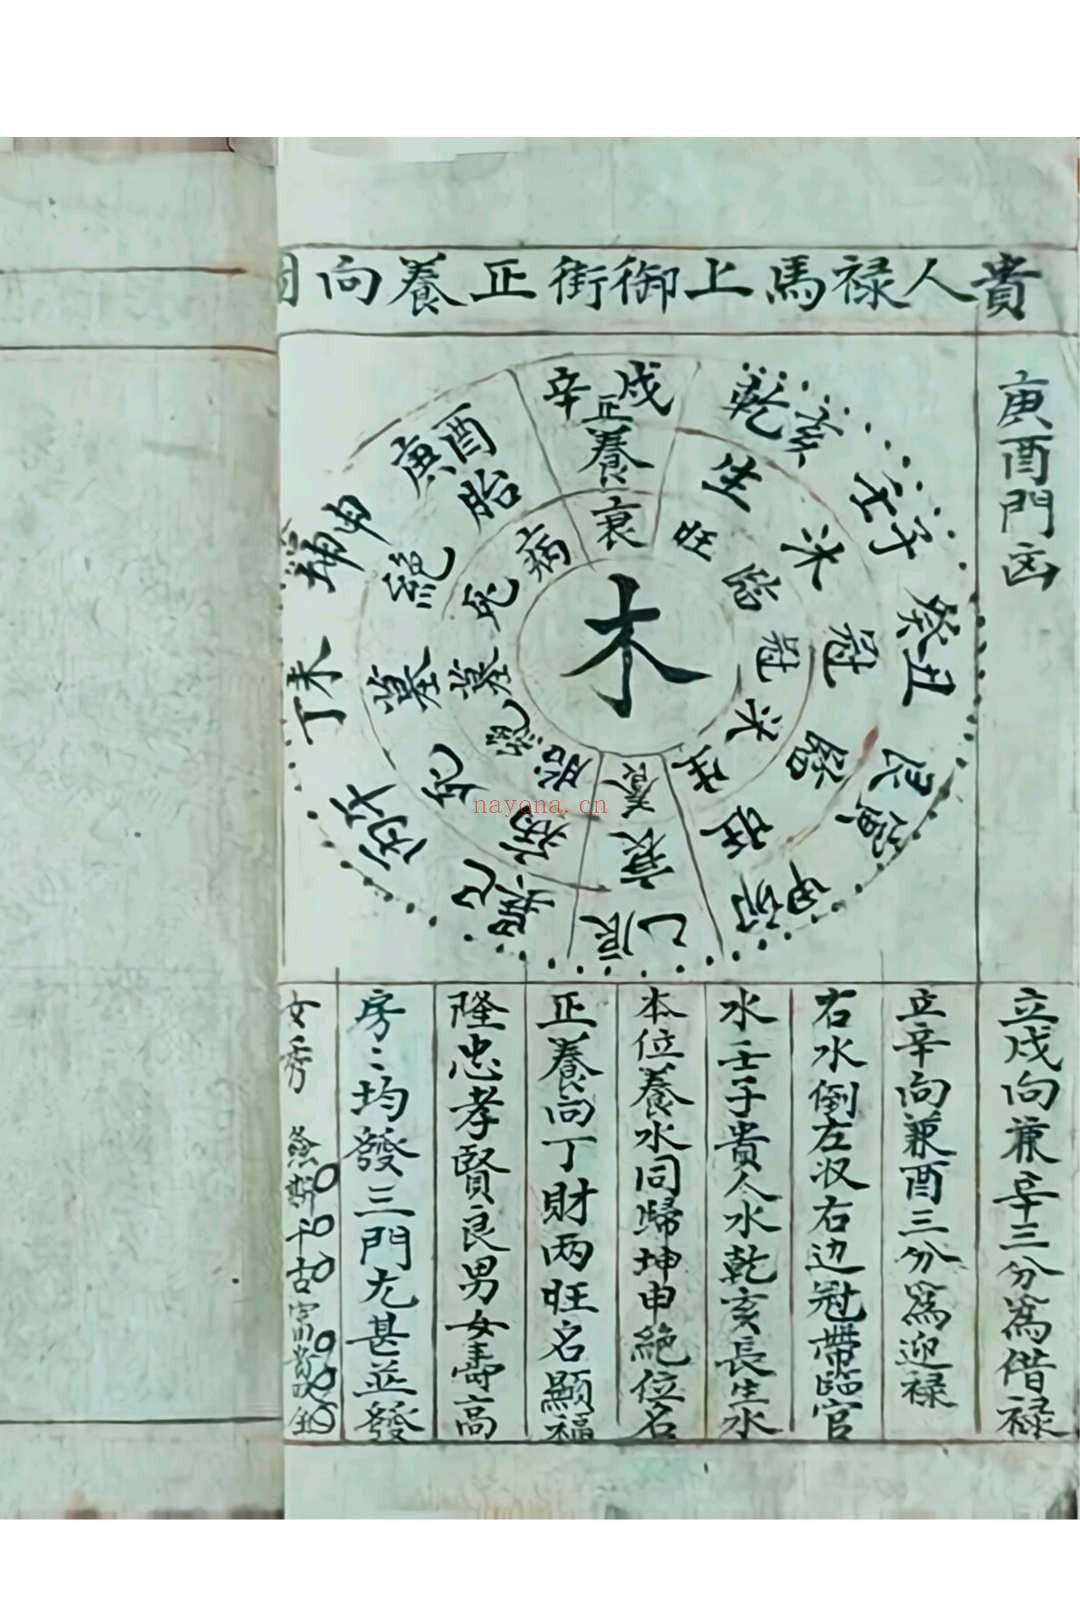 貴人禄馬上御街正養向
庚酉門凶
辛戌
正養
衰
乾亥
生
旺
壬子
沐
臨
癸丑
冠
冠
艮寅
臨
沐
甲卯
旺
生
乙辰
衰
養
巽巳
病
胎
丙午
死
絕
丁未
墓
墓
坤申
絕
死
庚酉
胎
病
木
nayona.cn
立戌向兼辛三分為借禄
立辛向兼酉三分為迎禄
右水倒左収右边冠帶臨官
水壬子貴人水乾亥長生水
本位養水同歸坤申絕位名
正養向丁財両旺名顯福
隆忠孝賢良男女壽高
房〻均發三門尤甚並發
女秀